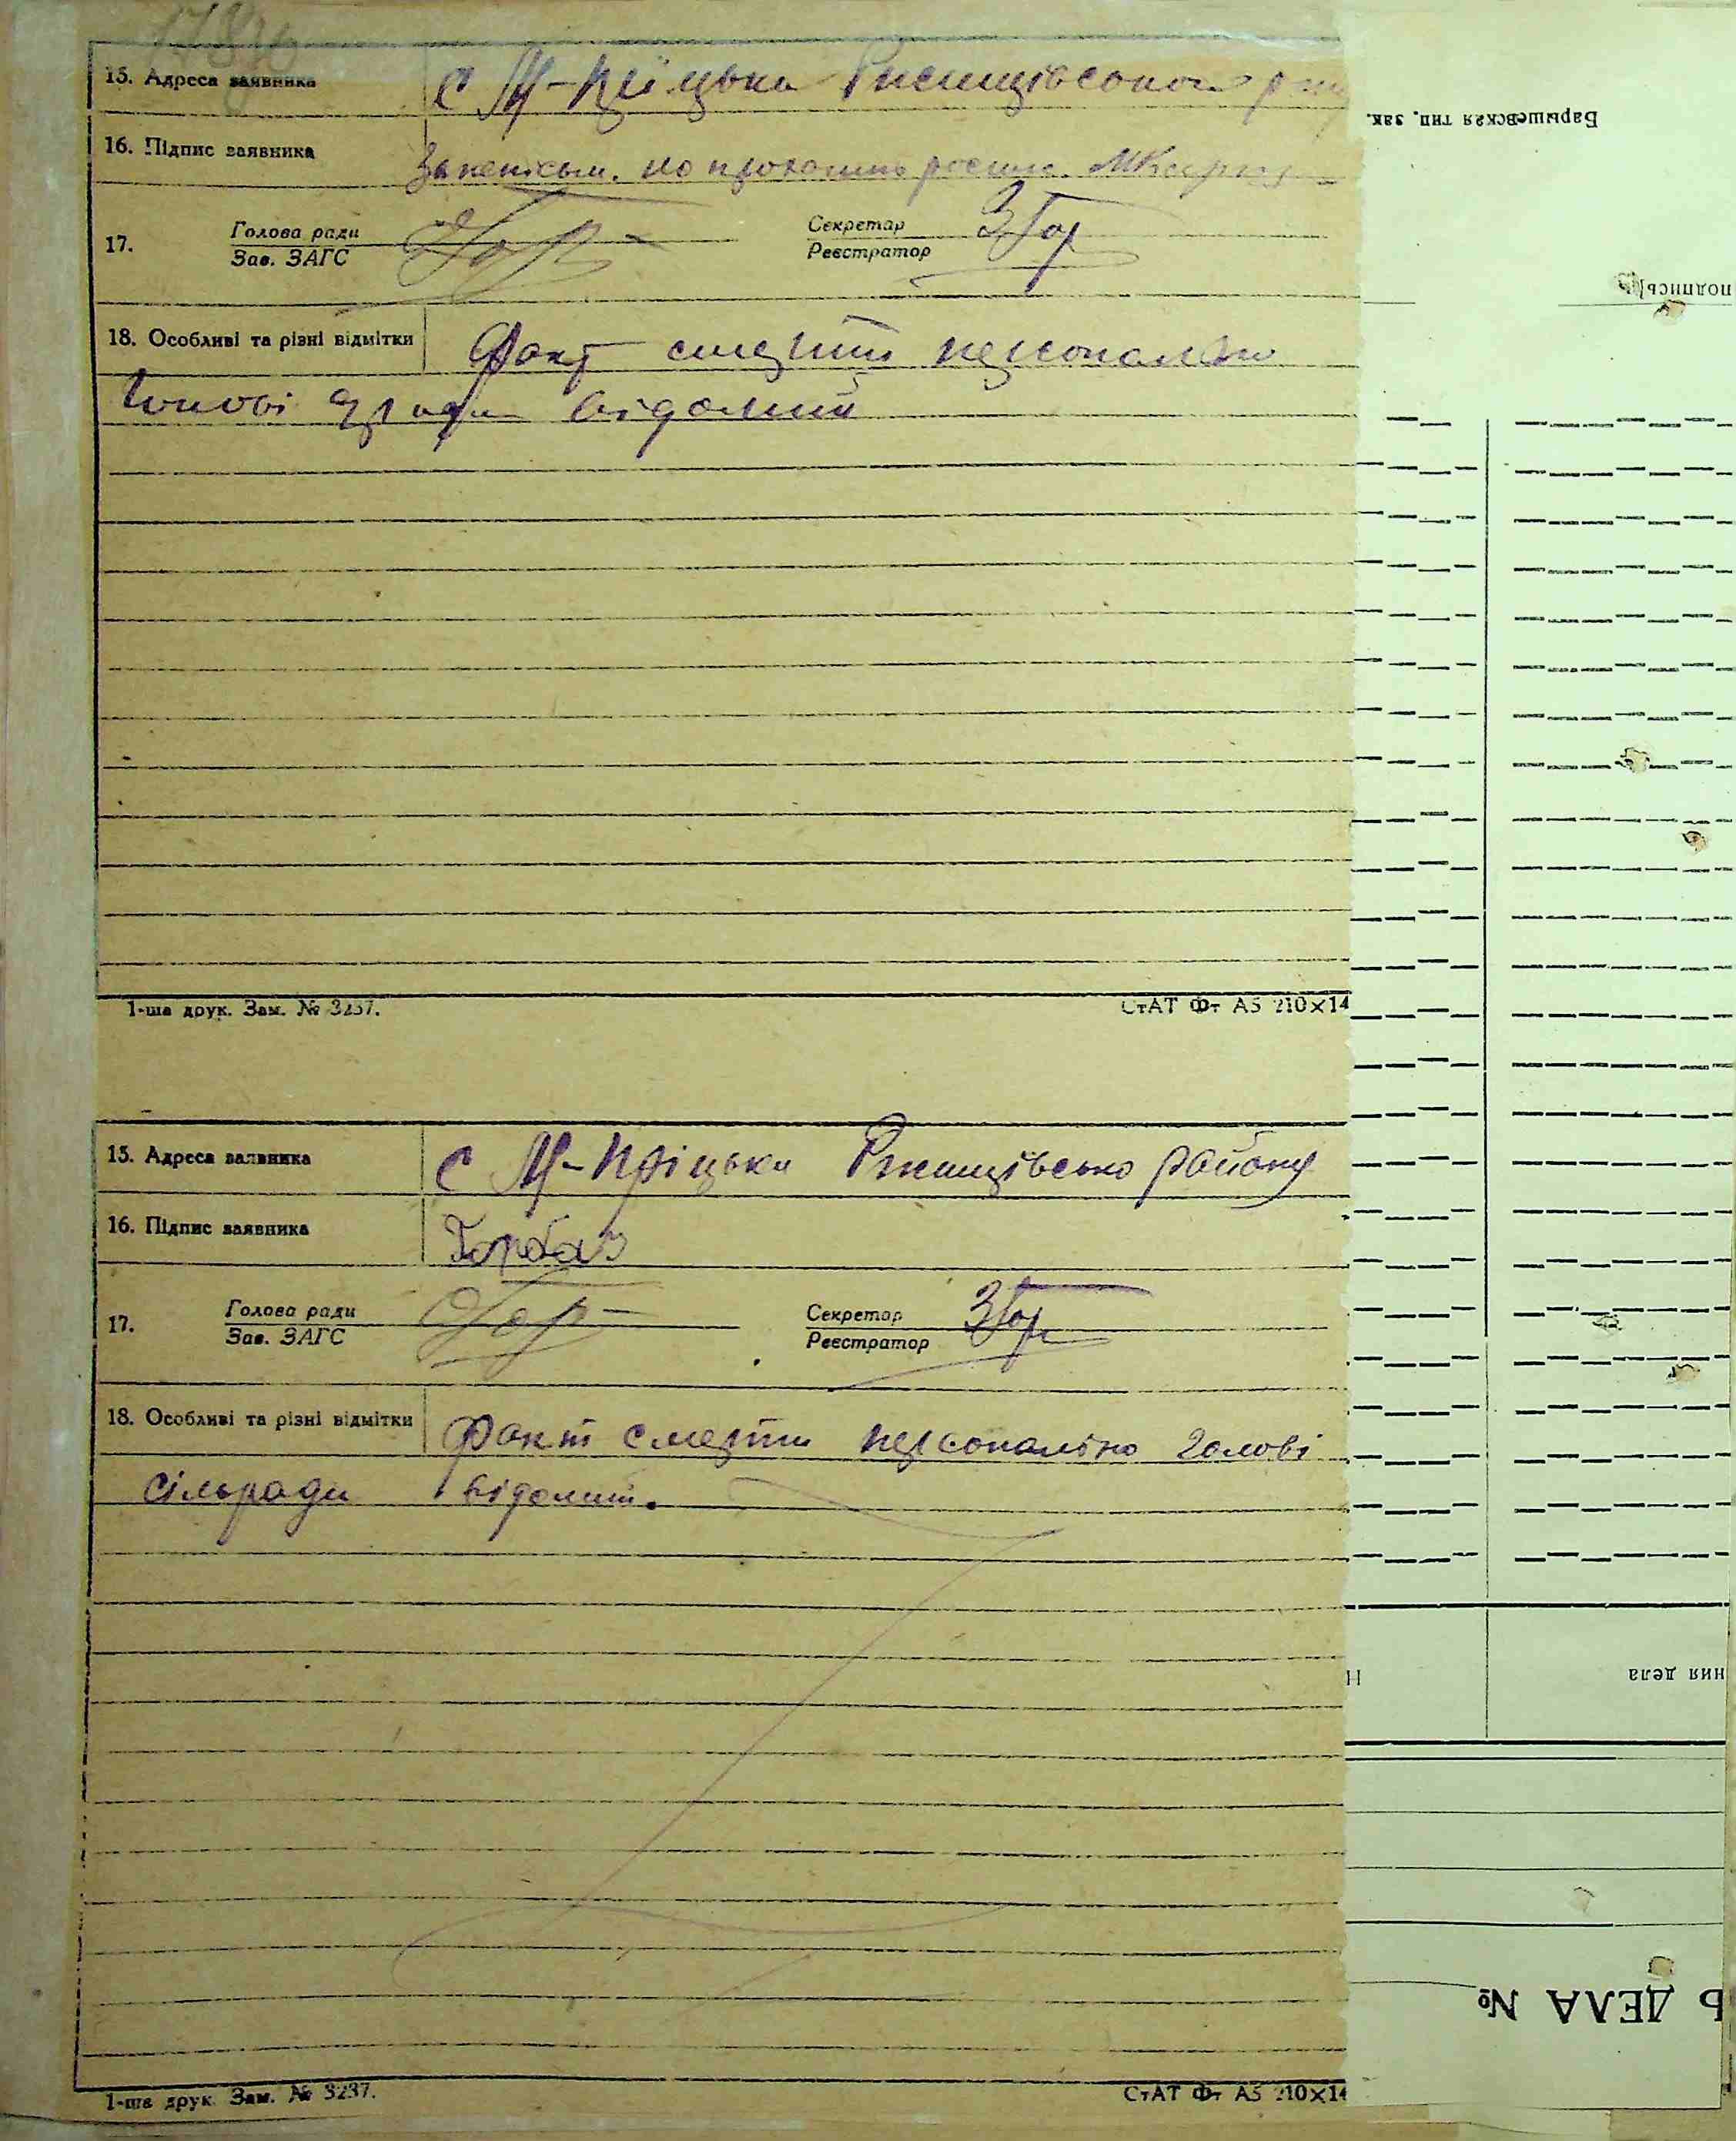 15. Адреса заявника С М-Пріцьки Ржищівського
16. Підпис заявника
17. Голова ради Секретар ЗГор
Зав. ЗАГС Реєстратор
18. Особливі та різні відмітки Факт смерти персонально
голові відомий
1-ша друк. Зам. № 3237. СтАТ Фт А5 210×14
15. Адреса заявника С М-Пріцьки Ржищівсько району
16. Підпис заявника Горбаз
17. Голова ради Гор Секретар ЗГор
Зав. ЗАГС Реєстратор
18. Особливі та різні відмітки Факт смерти персонально голові
сільради відомий.
1-ша друк. Зам. № 3237. СтАТ Фт А5 210×14
Барышевская тип. зак.
подпись)
ния дела
Н
Ь ДЕЛА №